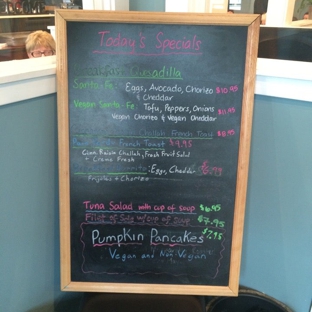 Today's Specials
Santa Fe: Eggs, Avocado, Chorizo $10.95
& Cheddar
Vegan Santa Fe: Tofu, Peppers, Onions $11.95
Vegan Chorizo & Vegan Cheddar
Challah French Toast $8.95
French Toast $9.95
Challah, Fresh Fruit Salad
+ Creme Fresh
: Eggs, Cheddar
+ Chorizo
Tuna Salad with cup of soup $6.95
Filet of Sole w/cup of soup $7.95
Pumpkin Pancakes $7.95
Vegan and Non-Vegan